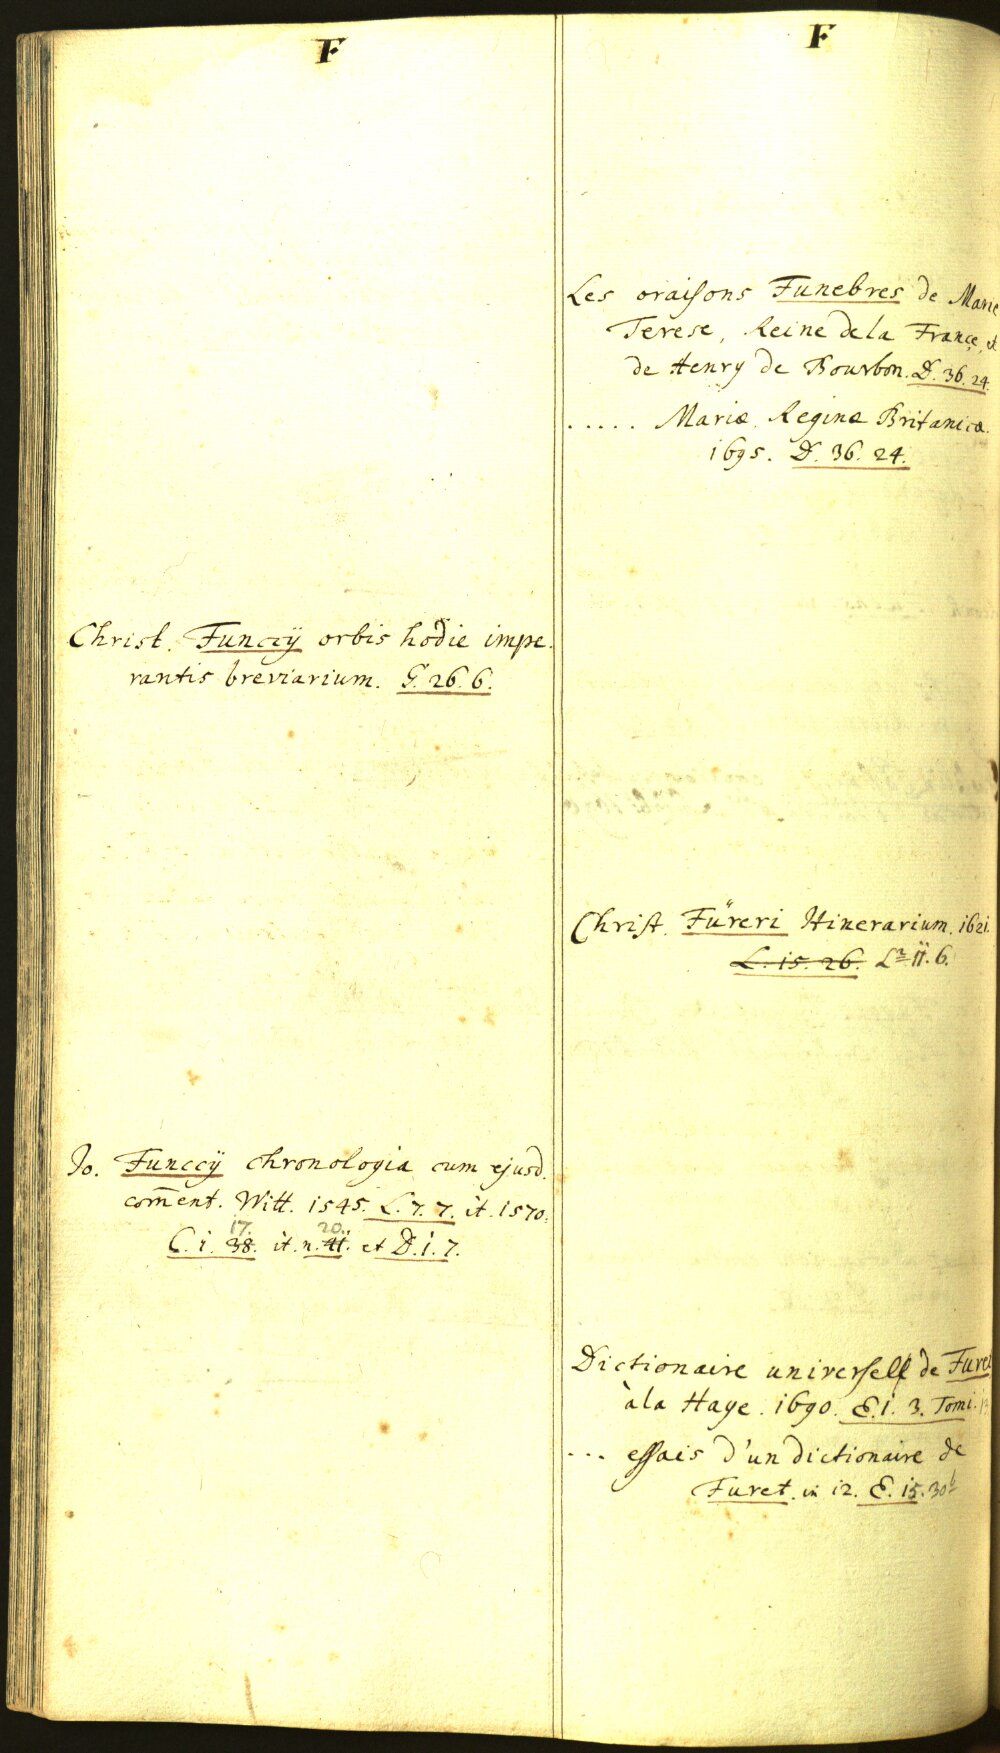 F
Christ. Funccÿ orbis hodie impe-
rantis breviarium. G. 26. 6.
Jo. Funccÿ chronologia cum ejusd.
com̅ent. Witt. 1545. L. 7. 7. it. 1570.
17. 20.
C. i. 38. it. n. 41. et D. i. 7.
F
Les oraisons Funebres de Marie
Terese, Reine de la France, et
de Henry de Bourbon. D. 36. 24.
..... Mariæ Reginæ Britanicæ.
1695. D. 36. 24.
Christ. Füreri Itinerarium. 1621.
L. 15. 26. 6.
Dictionaire universell de Furet
à la Haye. 1690. E. i. 3. Tomi.
... essais d'un dictionaire de
Furet. in 12. E. 15. 30